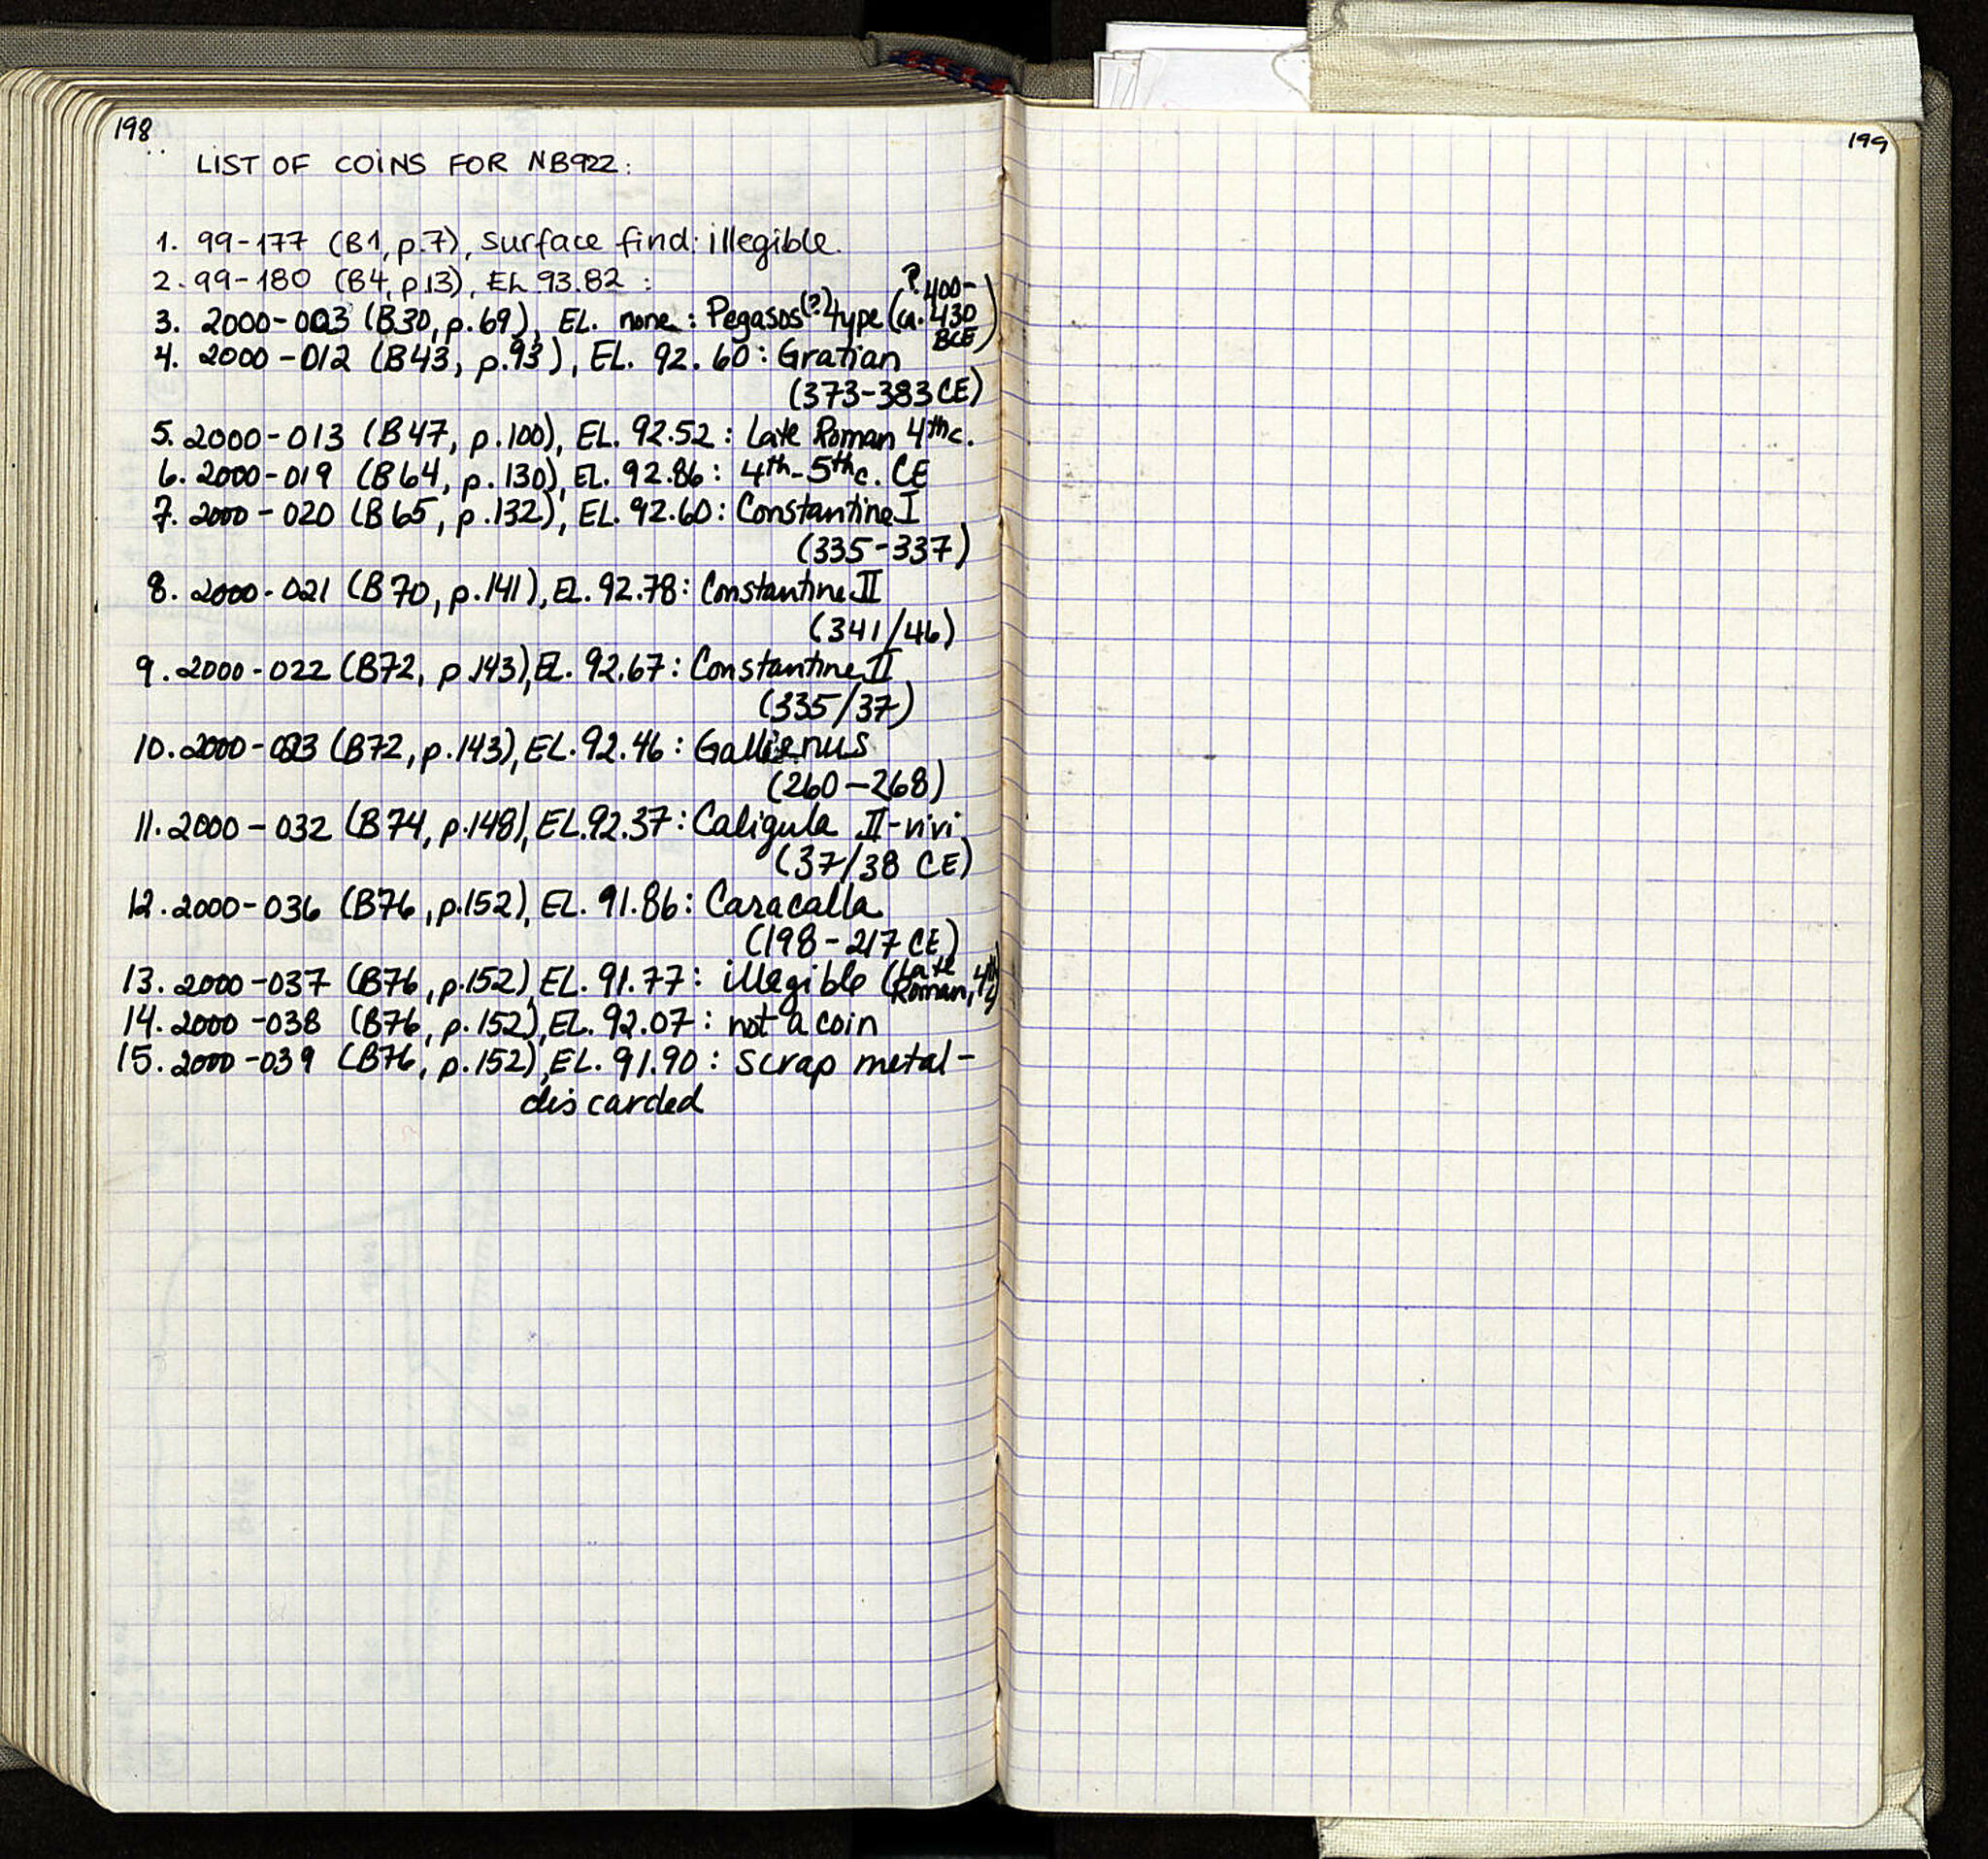 198
LIST OF COINS FOR NB922:
1. 99-177 (B1, p.7), surface find: illegible.
2. 99-180 (B4, p.13), EL 93.82 :
3. 2000-003 (B30, p.69), EL. none: Pegasos(?) type (ca. ?400-430 BCE)
4. 2000-012 (B43, p.93), EL. 92.60: Gratian
(373-383 CE)
5. 2000-013 (B47, p.100), EL. 92.52: Late Roman 4th c.
6. 2000-019 (B64, p.130), EL. 92.86: 4th-5th c. CE
7. 2000-020 (B65, p.132), EL. 92.60: Constantine I
(335-337)
8. 2000-021 (B70, p.141), EL. 92.78: Constantine II
(341/46)
9. 2000-022 (B72, p.143), EL. 92.67: Constantine II
(335/37)
10. 2000-023 (B72, p.143), EL. 92.46: Gallienus
(260-268)
11. 2000-032 (B74, p.148), EL. 92.37: Caligula II-vivi
(37/38 CE)
12. 2000-036 (B76, p.152), EL. 91.86: Caracalla
(198-217 CE)
13. 2000-037 (B76, p.152), EL. 91.77: illegible (Late Roman, 4th)
14. 2000-038 (B76, p.152), EL. 92.07: not a coin
15. 2000-039 (B76, p.152), EL. 91.90: scrap metal-
discarded
199